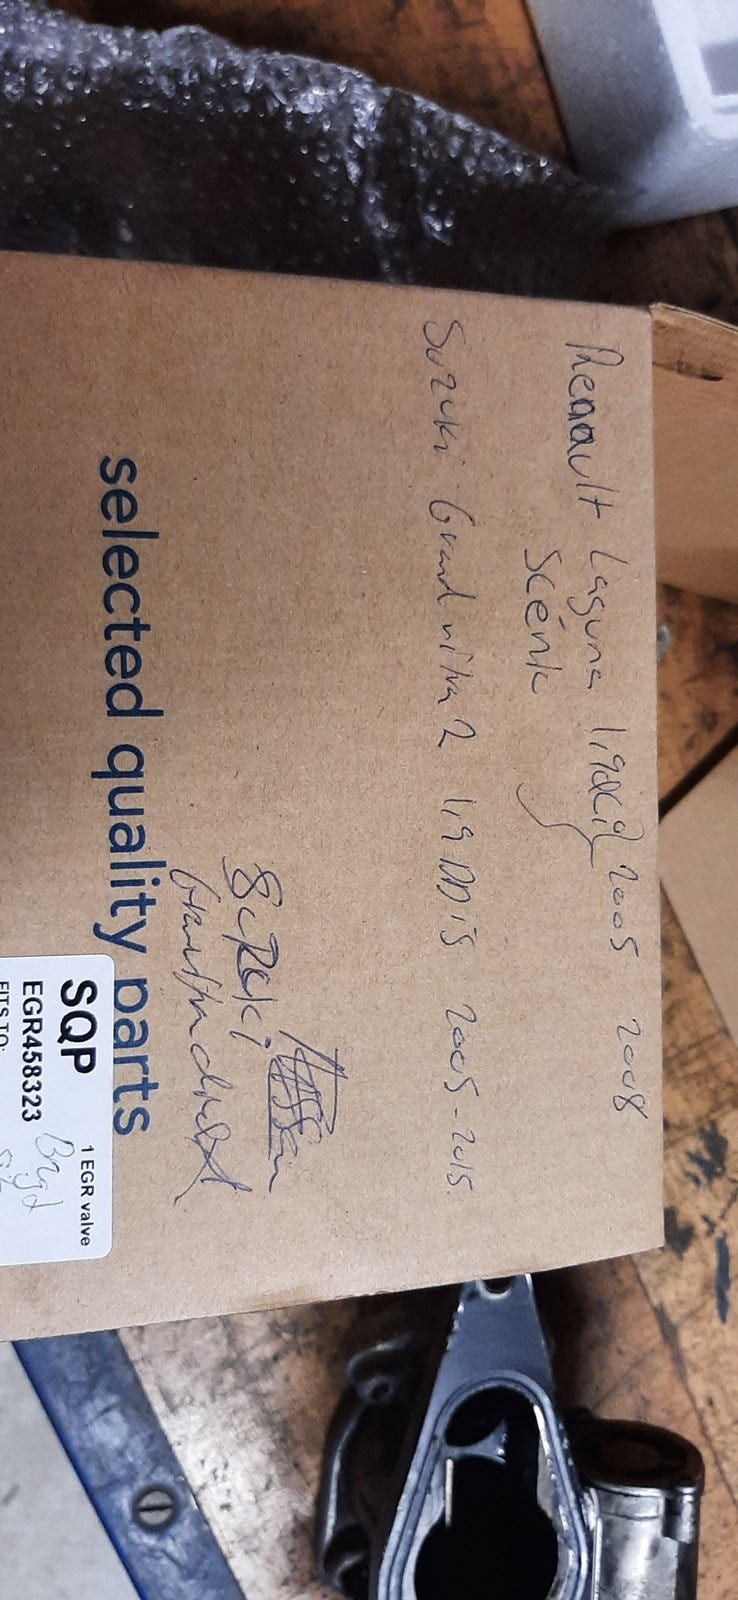 Renault Laguna 1,9dCi 2005 2008
Scénic
Suzuki Grand vitra 2 1,9 DDIS 2005-2015.
Suzuki
selected quality parts
SQP 1 EGR valve
EGR458323
FITS TO: